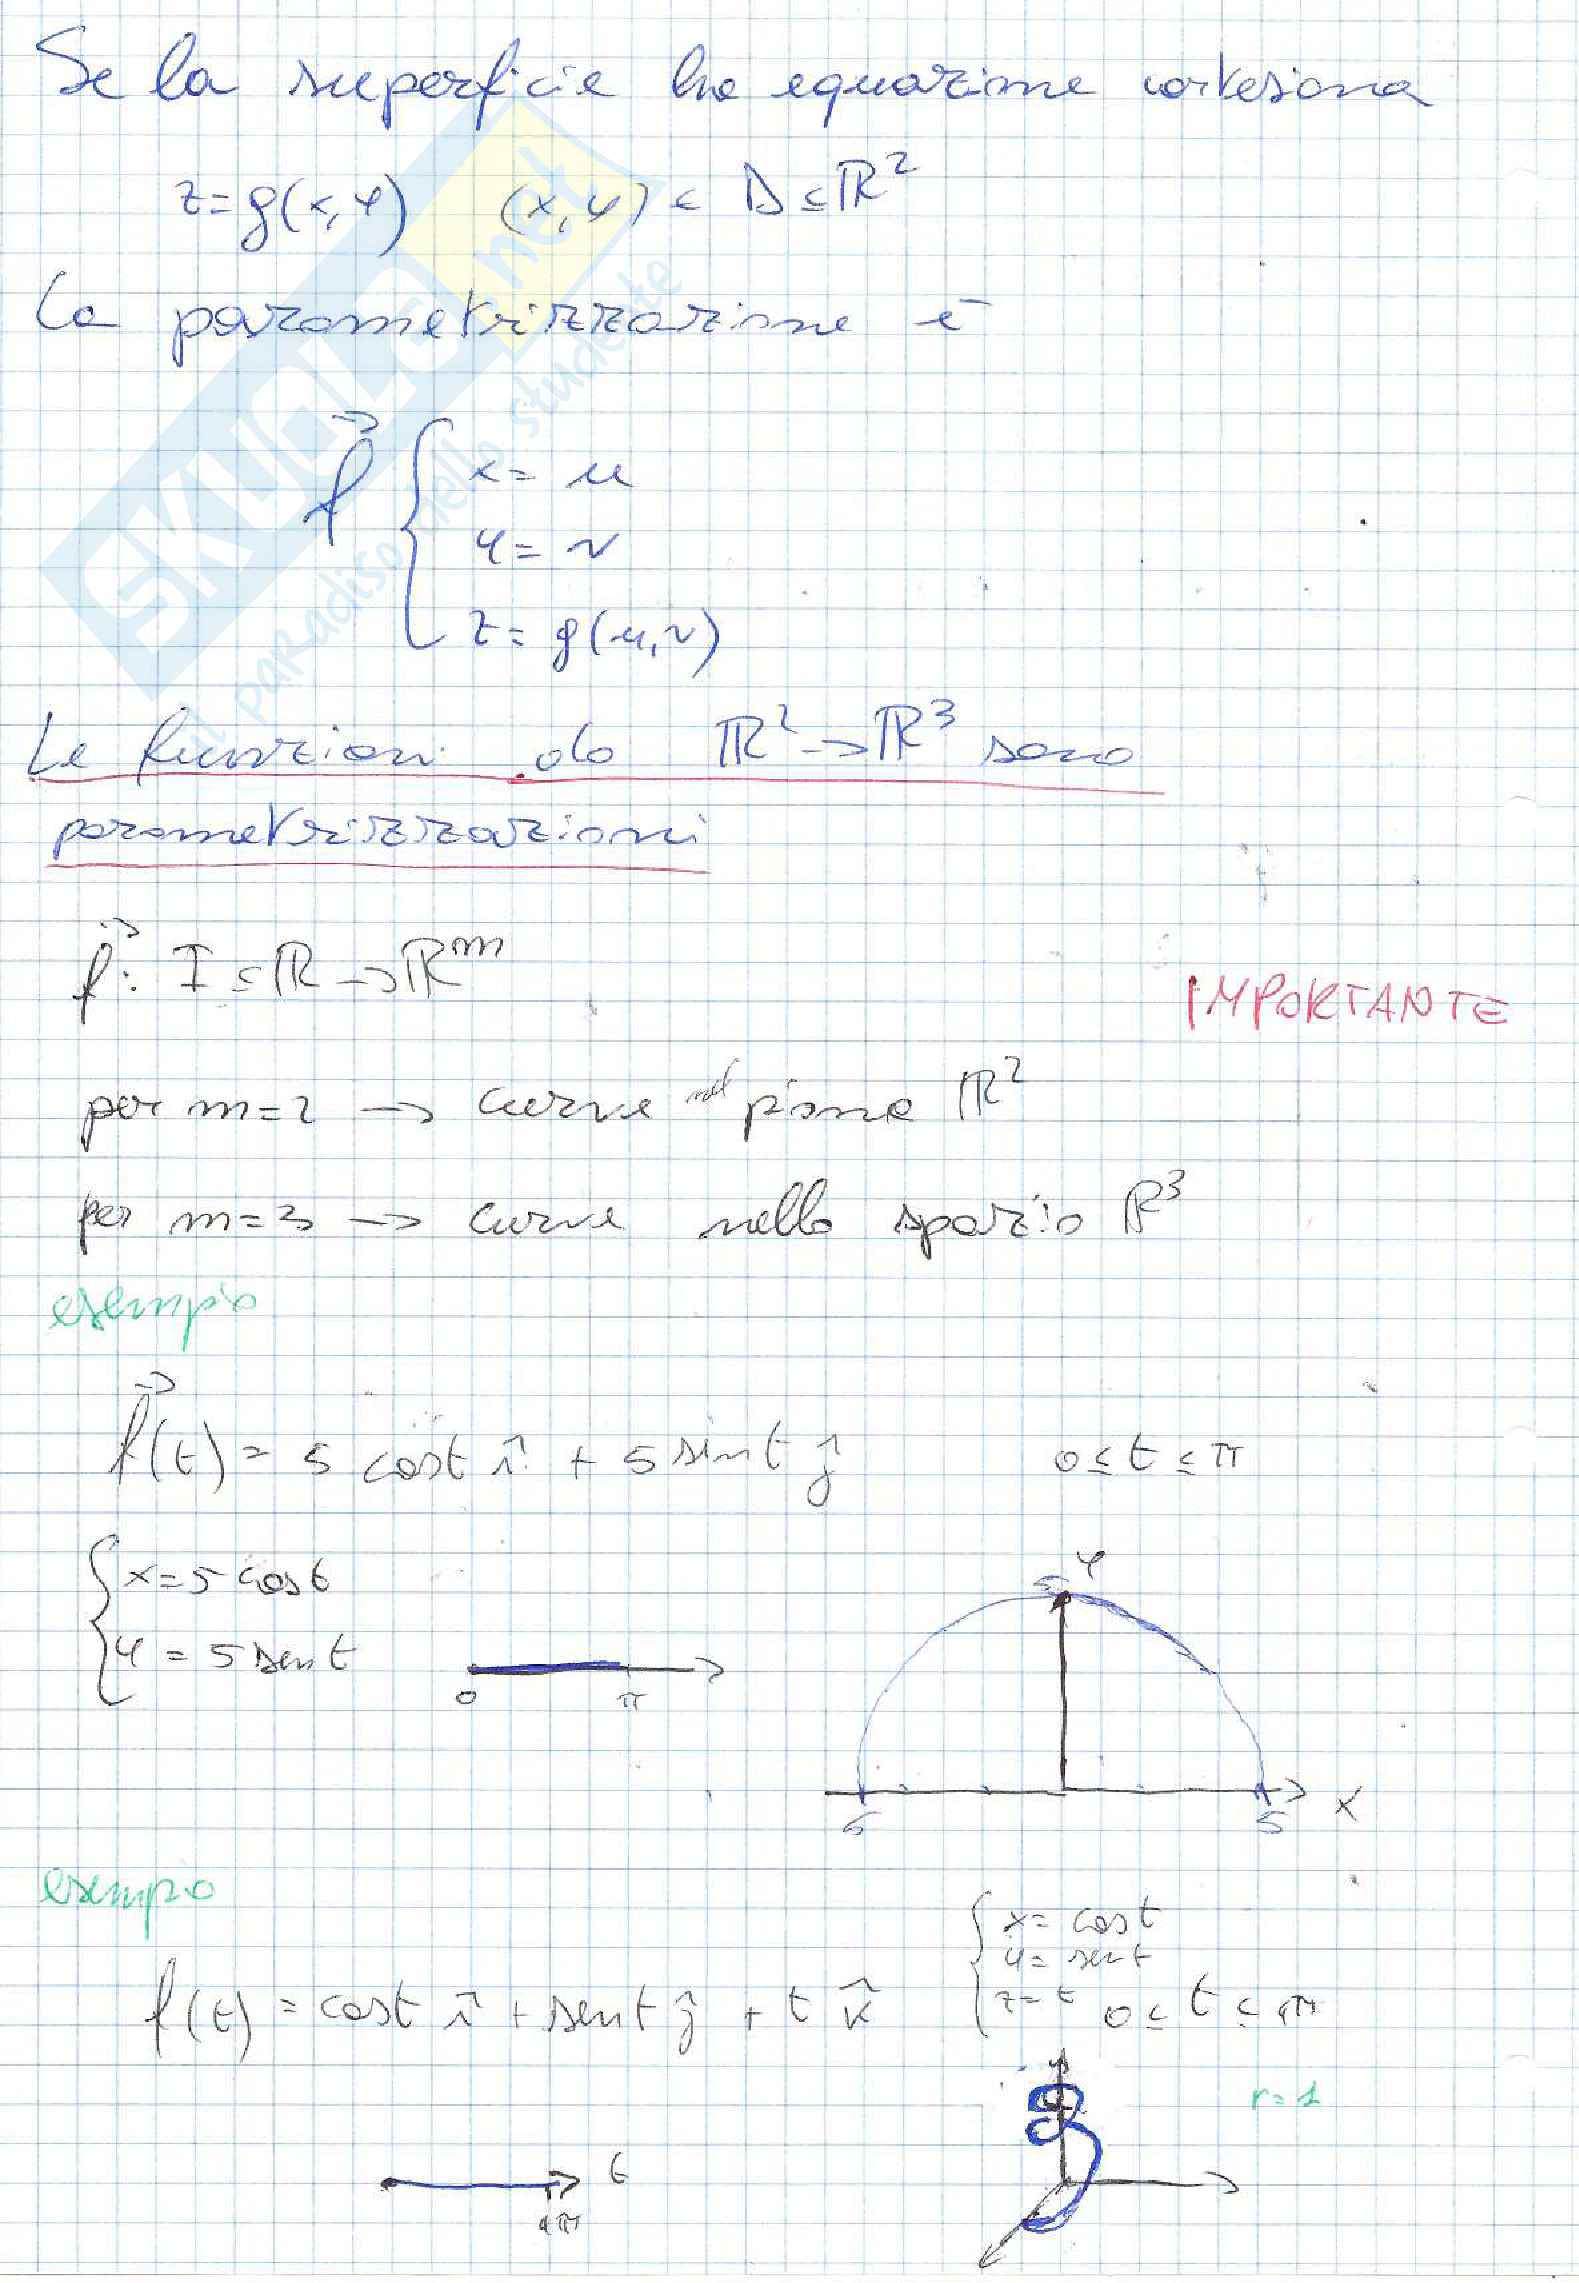 Se la superficie ha equazione cartesiana
z=g(x,y) (x,y) ∈ D ⊆ ℝ²
La parametrizzazione è
f⃗ { x= u
y= v
z= g(u,v)
Le funzioni da ℝ² → ℝ³ sono
parametrizzazioni
f⃗: I ⊆ ℝ → ℝᵐ
IMPORTANTE
per m=2 → curve nel piano ℝ²
per m=3 → curve nello spazio ℝ³
esempio
f⃗(t) = 5 cost î + 5 sint ĵ 0≤t≤π
{ x=5 cost
y = 5 sent
0 π
y
5
5 5 x
esempio
{ x= cost
y= sent
z= t 0≤t≤4π
f(t) = cost î + sent ĵ + t k̂
r=1
t
4π
SKUOLA.net
il paradiso dello studente